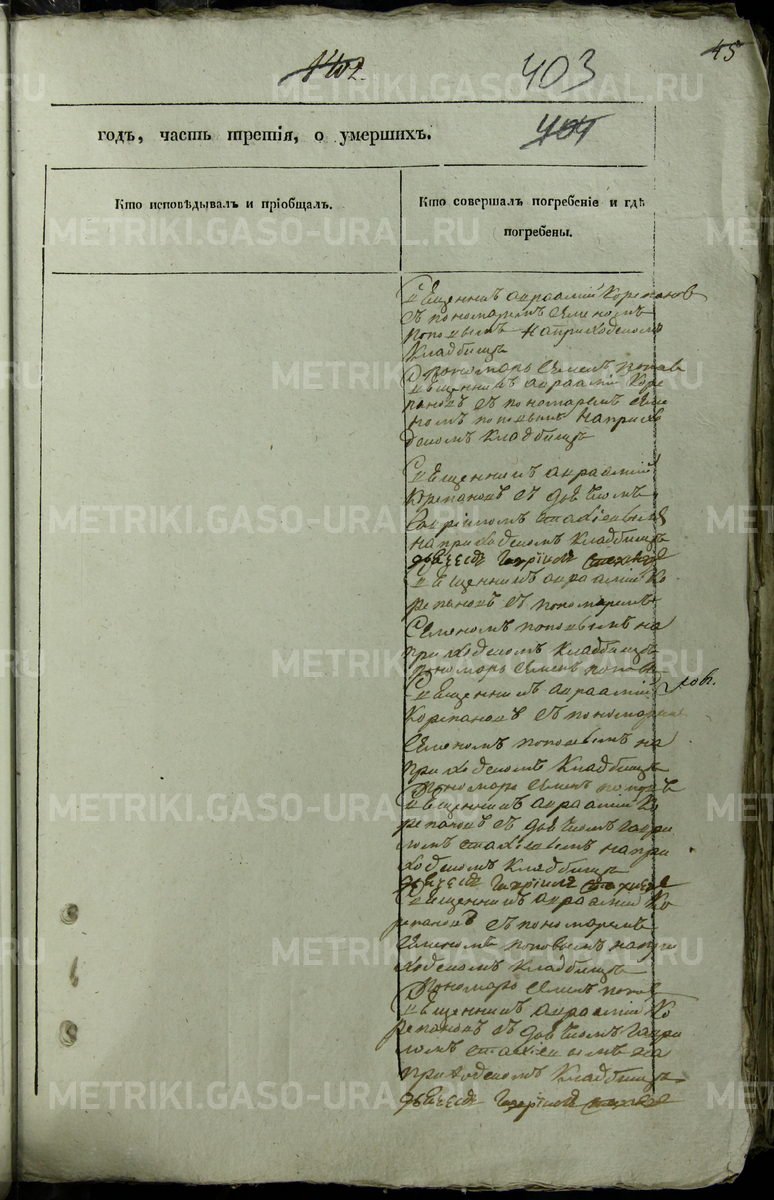 402.
403
45
404
годъ, часть третія, о умершихъ.
Кто исповѣдывалъ и пріобщалъ.
Кто совершалъ погребеніе и гдѣ
погребены.
Священникъ авраамій Корепановъ
съ пономаремъ Семеномъ
поповымъ на приходскомъ
Кладбищѣ
Пономарь Семенъ поповъ
Священникъ авраамій Коре
пановъ съ пономаремъ Семе
номъ поповымъ на прихо
дскомъ кладбищѣ
Священникъ авраамій
Корепановъ съ дьячкомъ
Гавріиломъ
на приходскомъ кладбищѣ
Священникъ авраамій Ко
репановъ съ пономаремъ
Семеномъ поповымъ на
приходскомъ кладбищѣ
Пономарь Семенъ поповъ
Священникъ авраамій
Корепановъ съ пономаремъ
Семеномъ поповымъ на
приходскомъ Кладбищѣ
Пономарь Семенъ поповъ
Священникъ авраамій Ко
репановъ съ дьячкомъ гаври
ломъ на при
ходскомъ Кладбищѣ
Священникъ авраамій Ко
репановъ съ пономаремъ
Семеномъ поповымъ на при
ходскомъ кладбищѣ
Пономарь Семенъ поповъ
Священникъ авраамій Ко
репановъ съ дьячкомъ гаври
ломъ на
приходскомъ Кладбищѣ
METRIKI.GASO-URAL.RU